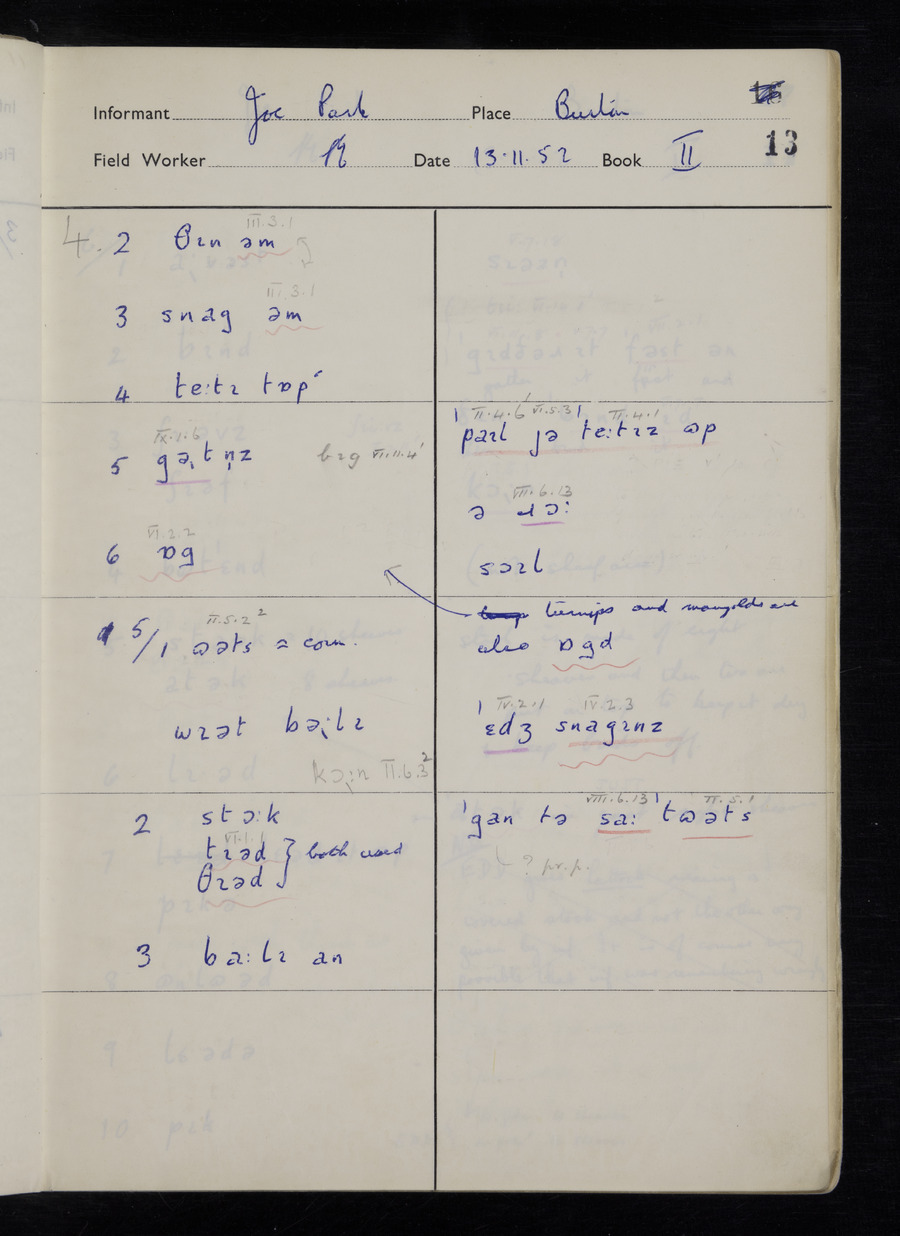 Informant Joe Park Place Burton
13
Field Worker Date 13.11.52 Book II
III.3.1
4. 2 θɪn əm
III.3.1
3 snag əm
4 te:tɪ tɒp
II.4.6 VI.5.3 II.4.1
ˈpaɪl jə te:tɪz əp
IX.1.6
5 gə̣tn̩z bɪg VII.11.4
VII.6.13
ə ɹɔ:
VI.2.2
6 ɒg
sɔɪl
turnips and mangolds are
also ɒgd
II.5.2
5/1 ɷəts = corn.
IV.2.1 IV.2.3
ˈɛdʒ snagɪnz
wɪət bə̣:lɪ
kɔ̣:n II.6.3
VIII.6.13 II.5.1
2 stɔ:k
ˈgan tə sa: tɷəts
VI.1.1
tɪəd
θɪəd } both used
? pr.p.
3 ba:lɪ an